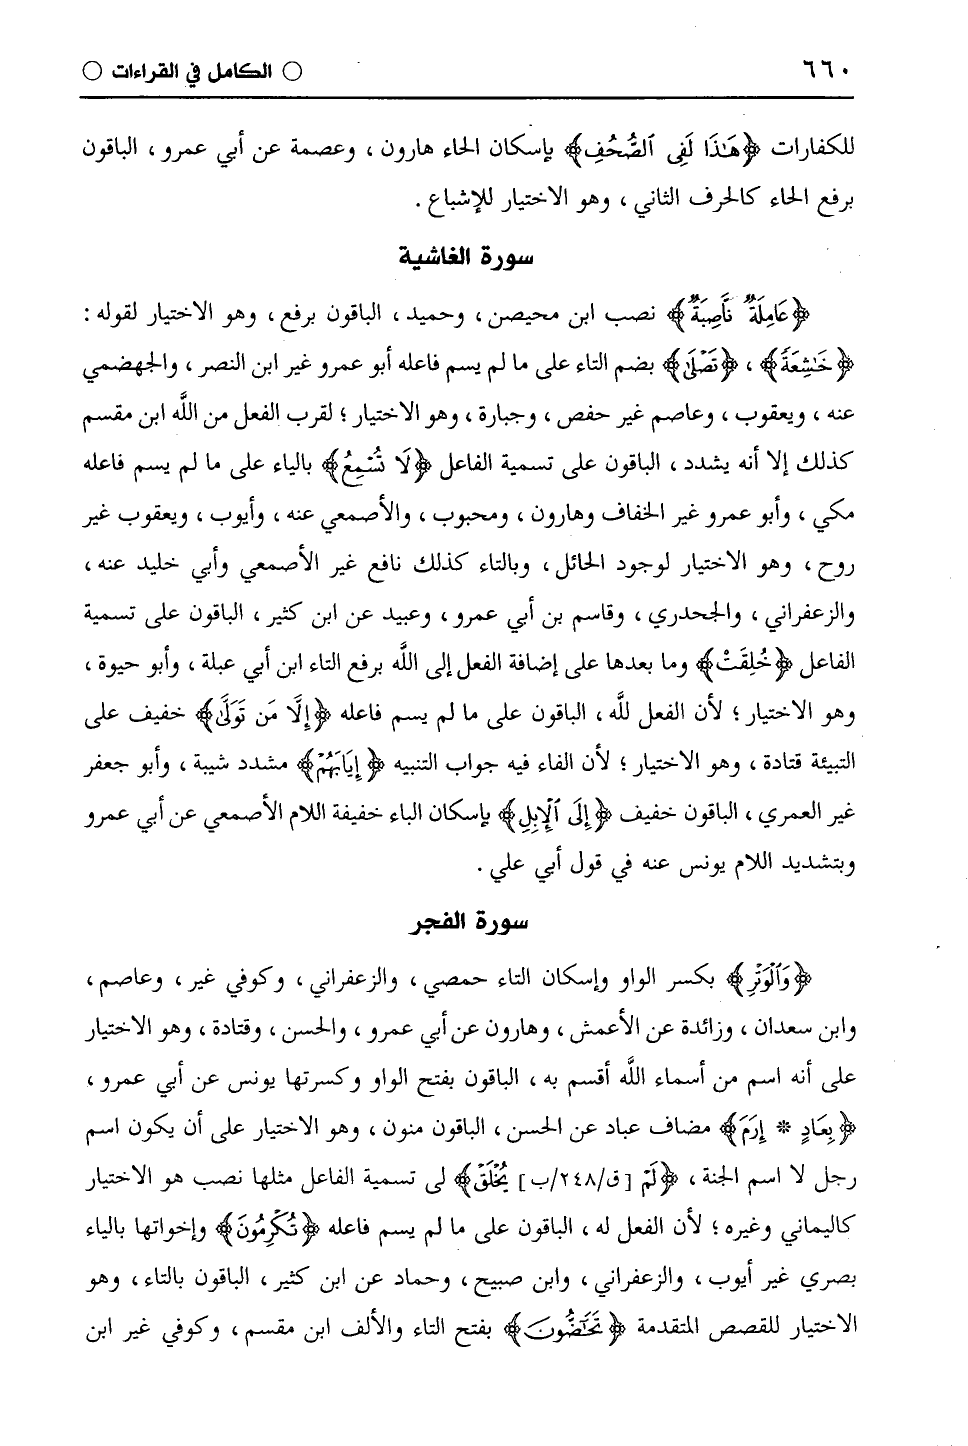 ٦٦٠ ○ الكامل في القراءات ○
للكفارات ﴿هَٰذَا لَفِى ٱلصُّحُفِ﴾ بإسكان الحاء هارون ، وعصمة عن أبي عمرو ، الباقون
برفع الحاء كالحرف الثاني ، وهو الاختيار للإشباع .
سورة الغاشية
﴿عَامِلَةٌ نَّاصِبَةٌ﴾ نصب ابن محيصن ، وحميد ، الباقون برفع ، وهو الاختيار لقوله :
﴿خَٰشِعَةٌ﴾ ، ﴿تَصْلَىٰ﴾ بضم التاء على ما لم يسم فاعله أبو عمرو غير ابن النصر ، والجهضمي
عنه ، ويعقوب ، وعاصم غير حفص ، وجبارة ، وهو الاختيار ؛ لقرب الفعل من اللَّه ابن مقسم
كذلك إلا أنه يشدد ، الباقون على تسمية الفاعل ﴿لَا تُسْمِعُ﴾ بالياء على ما لم يسم فاعله
مكي ، وأبو عمرو غير الخفاف وهارون ، ومحبوب ، والأصمعي عنه ، وأيوب ، ويعقوب غير
روح ، وهو الاختيار لوجود الحائل ، وبالتاء كذلك نافع غير الأصمعي وأبي خليد عنه ،
والزعفراني ، والجحدري ، وقاسم بن أبي عمرو ، وعبيد عن ابن كثير ، الباقون على تسمية
الفاعل ﴿خُلِقَتْ﴾ وما بعدها على إضافة الفعل إلى اللَّه برفع التاء ابن أبي عبلة ، وأبو حيوة ،
وهو الاختيار ؛ لأن الفعل للَّه ، الباقون على ما لم يسم فاعله ﴿إِلَّا مَن تَوَلَّىٰ﴾ خفيف على
التبيئة قتادة ، وهو الاختيار ؛ لأن الفاء فيه جواب التنبيه ﴿إِيَابَهُمْ﴾ مشدد شيبة ، وأبو جعفر
غير العمري ، الباقون خفيف ﴿إِلَى ٱلْإِبِلِ﴾ بإسكان الباء خفيفة اللام الأصمعي عن أبي عمرو
وبتشديد اللام يونس عنه في قول أبي علي .
سورة الفجر
﴿وَٱلْوَتْرِ﴾ بكسر الواو وإسكان التاء حمصي ، والزعفراني ، وكوفي غير ، وعاصم ،
وابن سعدان ، وزائدة عن الأعمش ، وهارون عن أبي عمرو ، والحسن ، وقتادة ، وهو الاختيار
على أنه اسم من أسماء اللَّه أقسم به ، الباقون بفتح الواو وكسرتها يونس عن أبي عمرو ،
﴿بِعَادٍ * إِرَمَ﴾ مضاف عباد عن الحسن ، الباقون منون ، وهو الاختيار على أن يكون اسم
رجل لا اسم الجنة ، ﴿لَمْ [ ق/٢٤٨/ب ] يُخْلَقْ﴾ لى تسمية الفاعل مثلها نصب هو الاختيار
كاليماني وغيره ؛ لأن الفعل له ، الباقون على ما لم يسم فاعله ﴿تُكْرِمُونَ﴾ وإخواتها بالياء
بصري غير أيوب ، والزعفراني ، وابن صبيح ، وحماد عن ابن كثير ، الباقون بالتاء ، وهو
الاختيار للقصص المتقدمة ﴿تَحَٰٓضُّونَ﴾ بفتح التاء والألف ابن مقسم ، وكوفي غير ابن